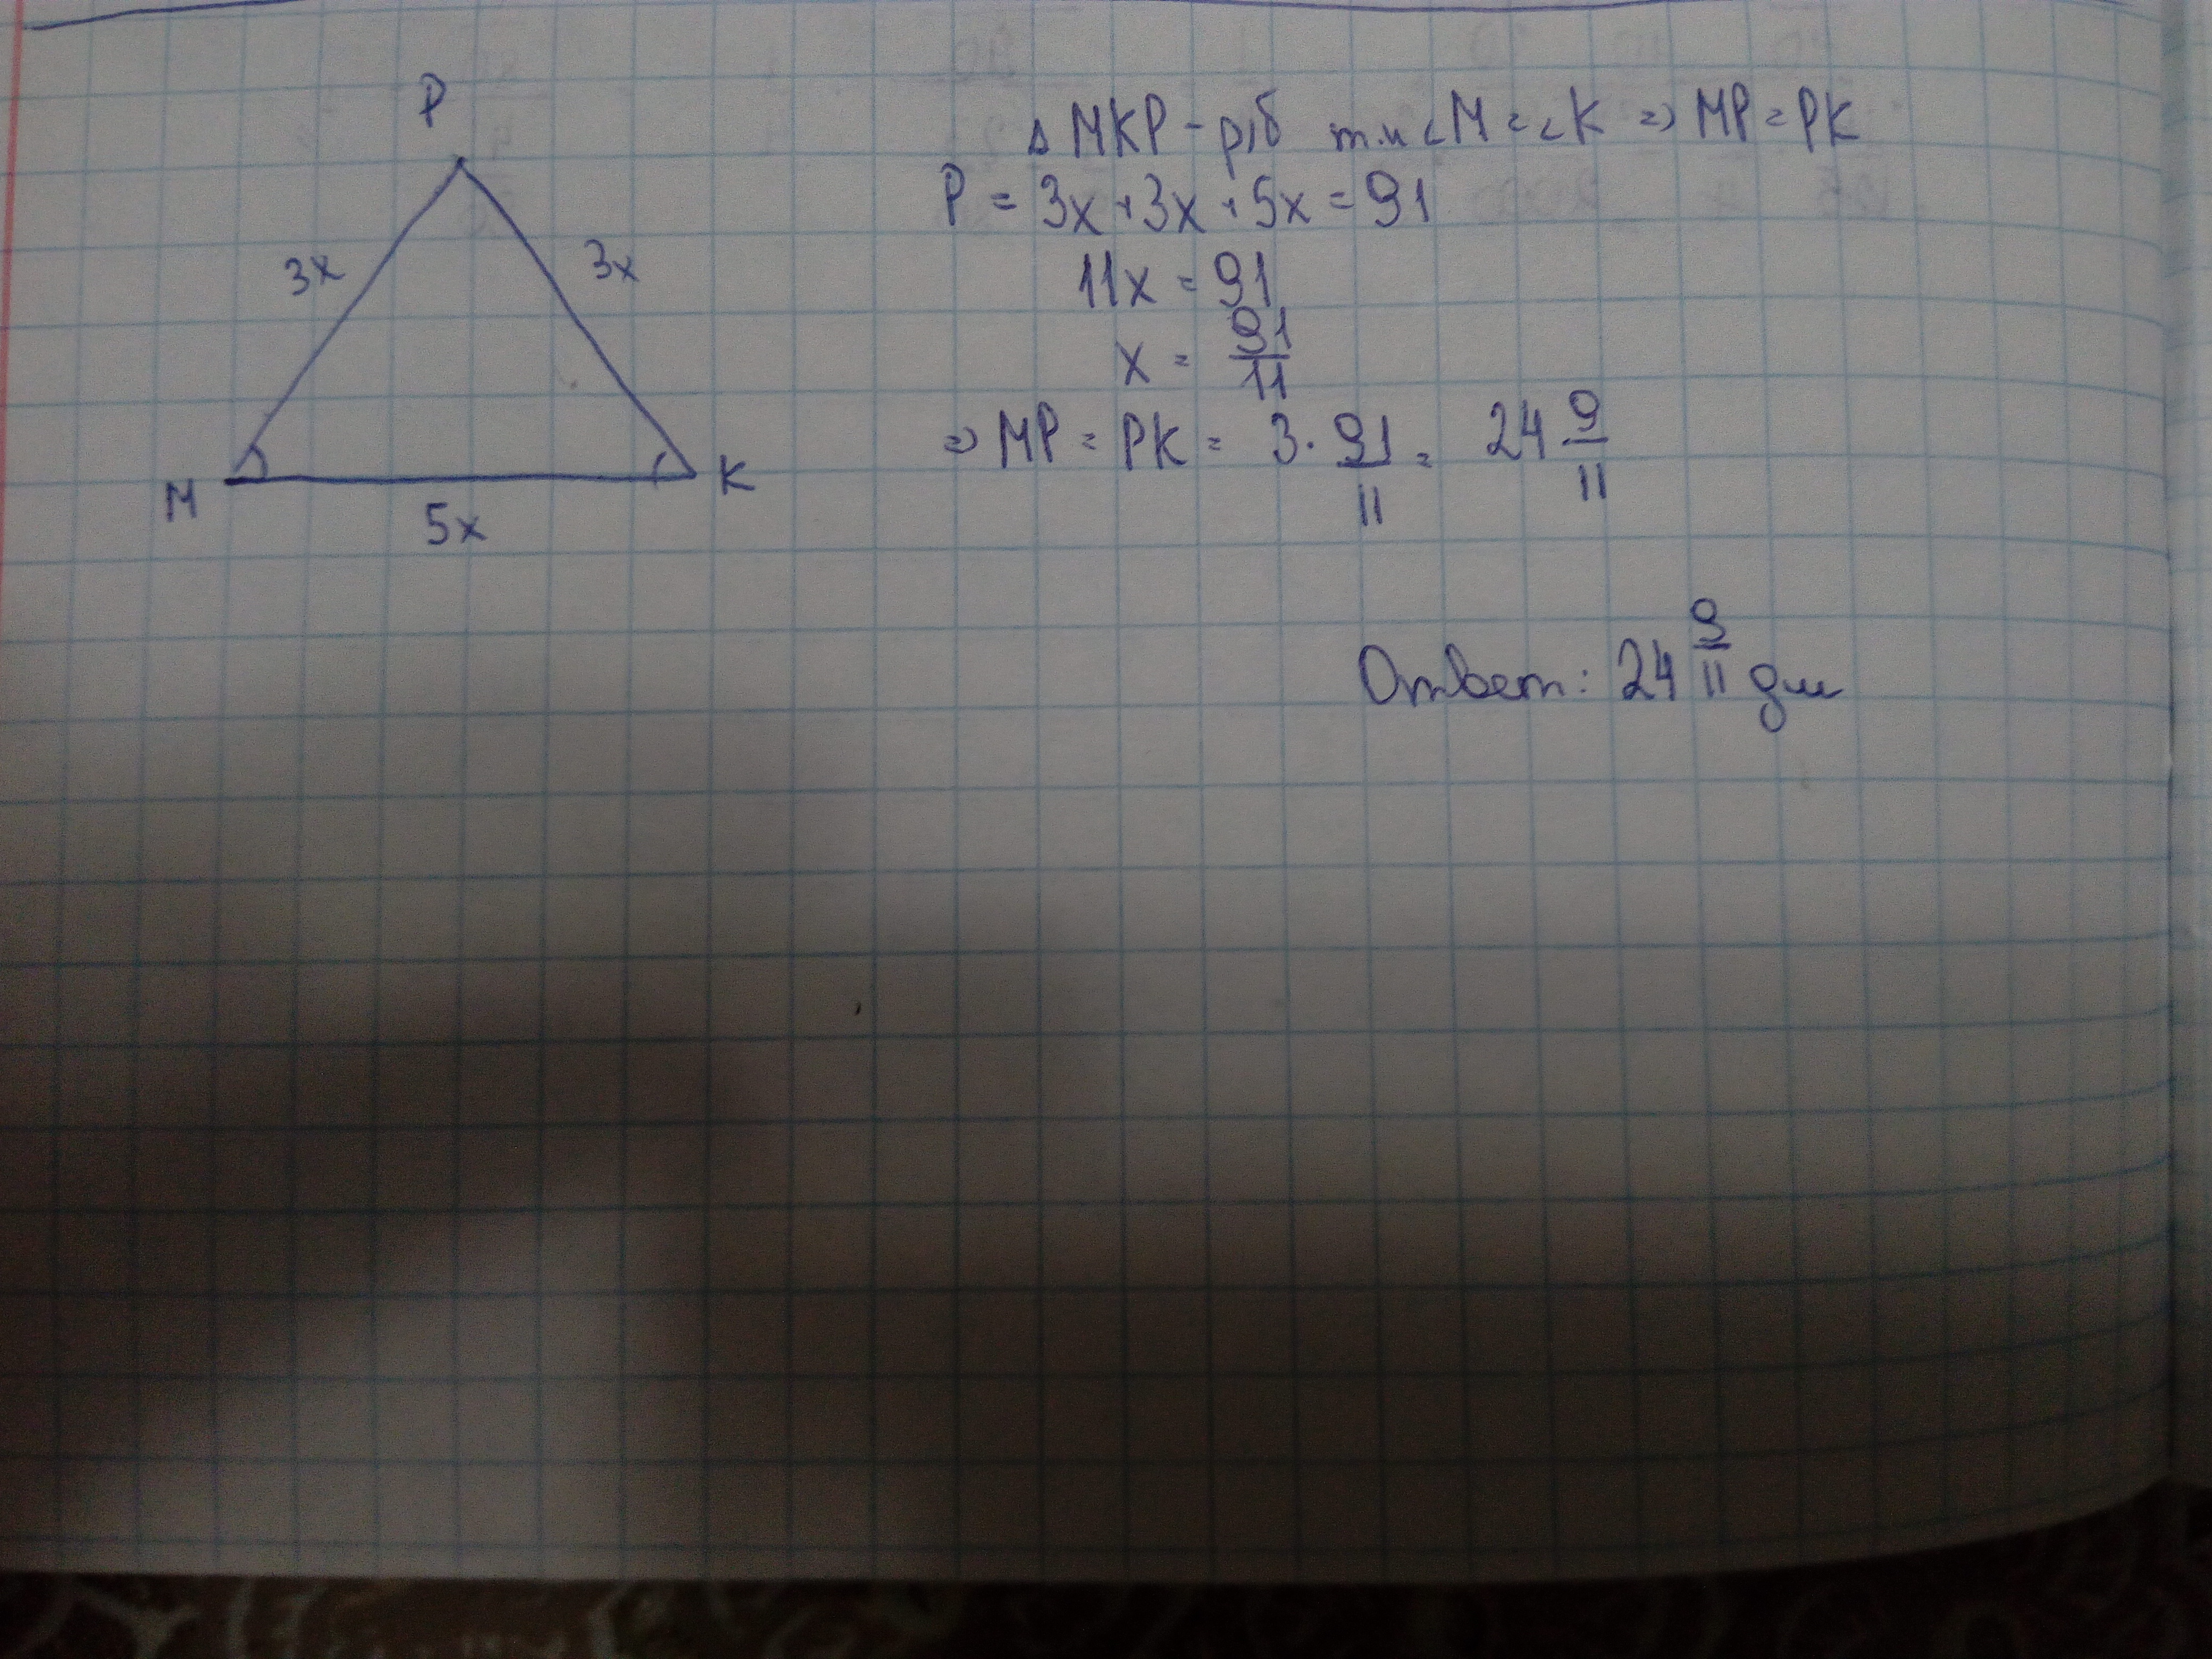 P
3x
3x
M
K
5x
Δ MKP - р/б т.к ∠M = ∠K => MP = PK
P = 3x + 3x + 5x = 91
11x = 91
x = 91/11
=> MP = PK = 3 · 91/11 = 24 9/11
Ответ: 24 9/11 дм